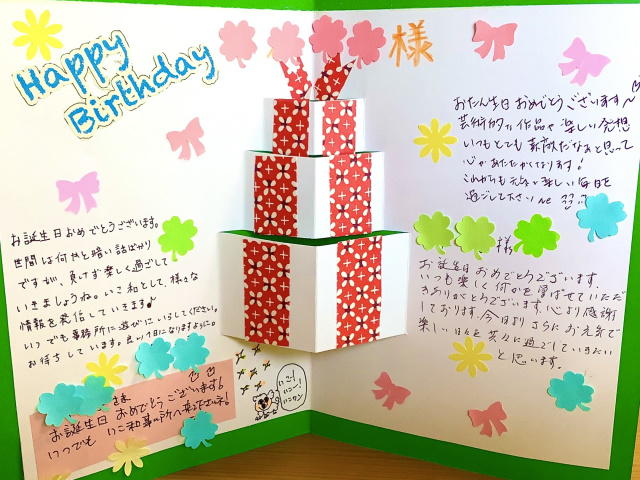 Happy
Birthday
様
お誕生日おめでとうございます。
世間は何かと暗い話ばかり
ですが、負けず楽しく過ごして
いきましょうね。いこ和として、様々な
情報を発信していきます♪
いつでも事務所に遊びにいらしてください。
お待ちしています。良い1日になりますように。
さま
お誕生日おめでとうございます!
いつでもいこ和事ム所へ来て下さいネ!
いこ!
いこー!
おたん生日おめでとうございます〜
芸術的な作品や楽しい発想
いつもとても素敵だなぁと思って
心があたたかくなります!
これからも元気で楽しい毎日を
過ごして下さいね
様
お誕生日おめでとうございます。
いつも楽しく何かを学ばせていただ
きありがとうございます。心より感謝
しております。今日よりさらにお元気で
楽しい日々を共々に過ごしていきたい
と思います。